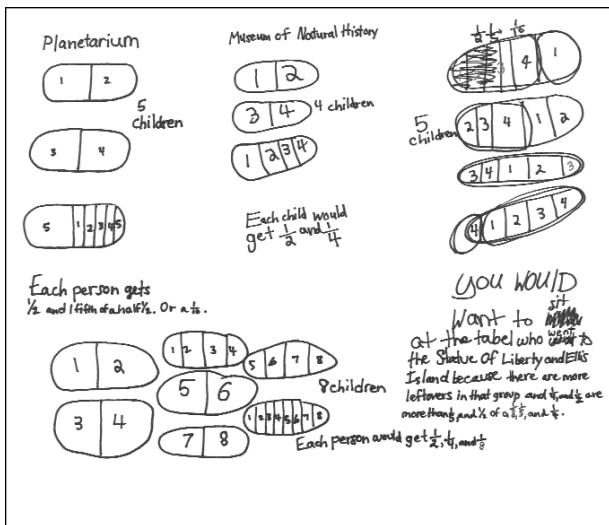 Planetarium
1 2
5
children
3 4
5 1 2 3 4 5
Each person gets
1/2 and 1 fifth of a half 1/2. Or a 1/10.
Museum of Natural History
1 2
3 4
4 children
1 2 3 4
Each child would
get 1/2 and 1/4
4 1
5
children
2 3 4 1 2
3 4 1 2 3
4 1 2 3 4
1 2
3 4
1 2 3 4
5 6
7 8
5 6 7 8
8 children
1 2 3 4 5 6 7 8
Each person would get 1/2, 1/4, and 1/8
YOU WOULD
Want to sit
at the tabel who went to
the Statue Of Liberty and Ellis
Island because there are more
leftovers in that group and and 1/2 are
more than and 1/2 of a and